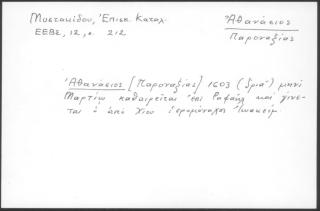 Μυστακίδου, Ἐπισκ. Καταλ.
ΕΕΒΣ, 12, σ. 212
Ἀθανάσιος
Παροναξίας
Ἀθανάσιος [Παροναξίας] 1603 (δρια') μηνὶ
Μαρτίῳ καθαιρεῖται ἐπὶ Ραφαὴλ καὶ γίνε-
ται ὁ ἀπὸ Χίου ἱερομόναχος Ἰωακείμ